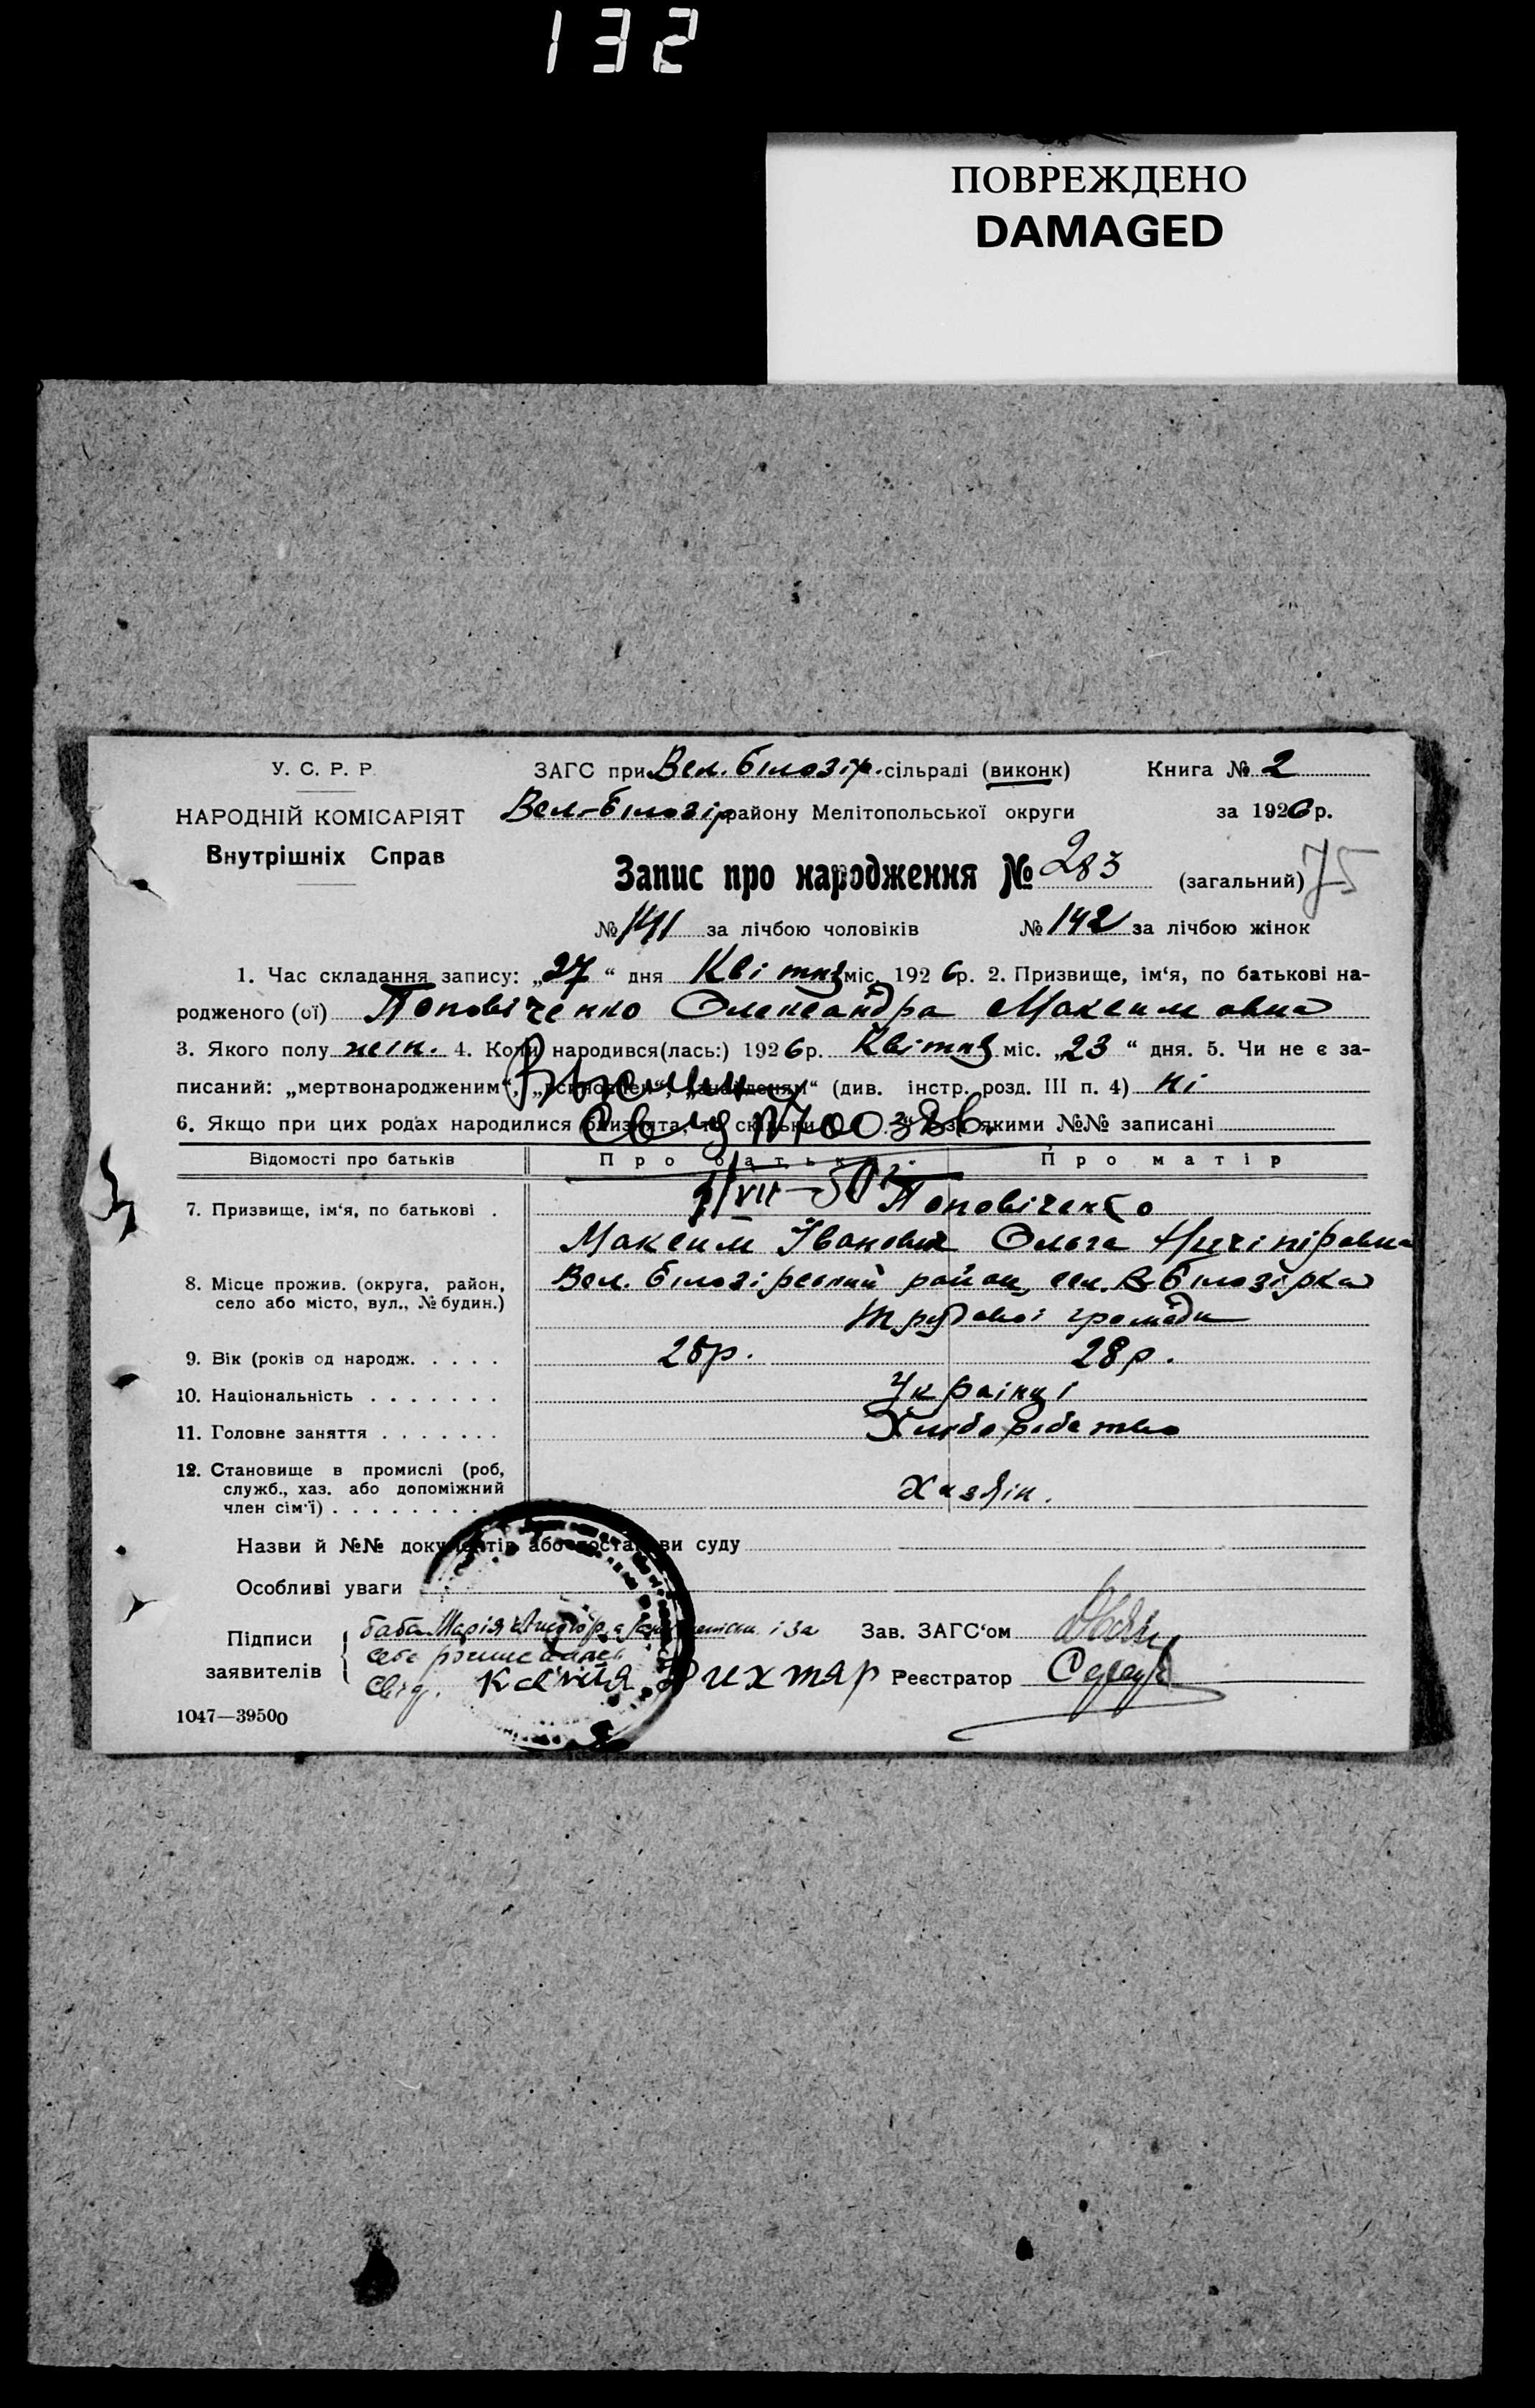 132
ПОВРЕЖДЕНО
DAMAGED
У. С. Р. Р.
ЗАГС при Вел. Білозір. сільраді (виконк)
Книга № 2
НАРОДНІЙ КОМІСАРІЯТ
Вел-Білозір району Мелітопольської округи
за 1926 р.
Внутрішніх Справ
Запис про народження № 283 (загальний) 75
№ 141 за лічбою чоловіків № 142 за лічбою жінок
1. Час складання запису: „27“ дня Квітня міс. 1926р. 2. Призвище, ім‘я, по батькові на-
родженого (ої) Поповіченко Олександра Максимовна
3. Якого полу жін. 4. Коли народився(лась:) 1926р. Квітня міс. „23“ дня. 5. Чи не є за-
писаний: „мертвонародженим“, (див. інстр. розд. III п. 4) ні
6. Якщо при цих родах народилися близнята, то скільки якими №№ записані
Відомості про батьків
Про батька.
Про матір
7. Призвище, ім‘я, по батькові .
Поповіченко
Максим Іванович Ольга Ничипіровна
8. Місце прожив. (округа, район,
село або місто, вул., № будин.)
Вел. Білозірський район, сел. В-Білозірка
Трудової громади
9. Вік (років од народж. . . . .
28р.
10. Національність . . . . . . .
Українці
11. Головне заняття . . . . . . .
Хлiборобство
12. Становище в промислі (роб,
служб., хаз. або допоміжний
член сім‘ї) . . . . . . . . .
Хазяїн.
Назви й №№ документів або постанови суду
Особливі уваги
Підписи
заявителів
баба Марія і за
себе
свід.
Рихтяр
Зав. ЗАГС‘ом
Реєстратор
1047—39500